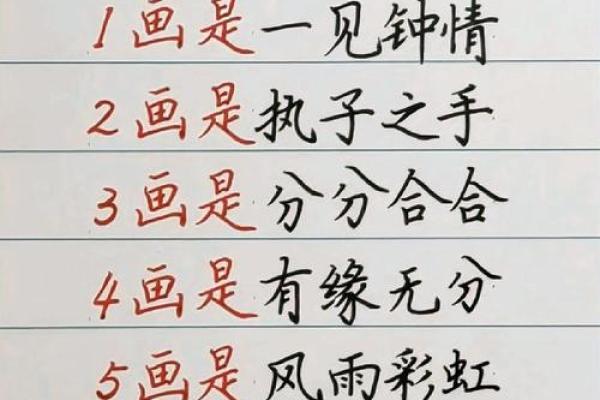 1画是一见钟情
2画是执子之手
3画是分分合合
4画是有缘无分
5画是风雨彩虹